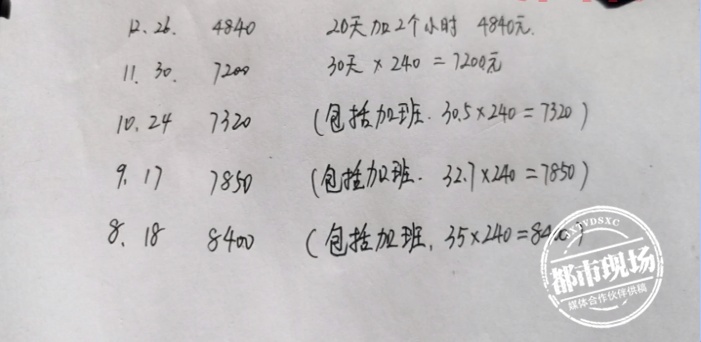 12. 26. 4840 20天加2个小时 4840元.
11. 30. 7200 30天×240=7200元
10. 24 7320 (包括加班. 30.5×240=7320)
9. 17 7850 (包括加班. 32.7×240=7850)
8. 18 8400 (包括加班. 35×240=8400)
DSXC
都市现场
媒体合作伙伴供稿